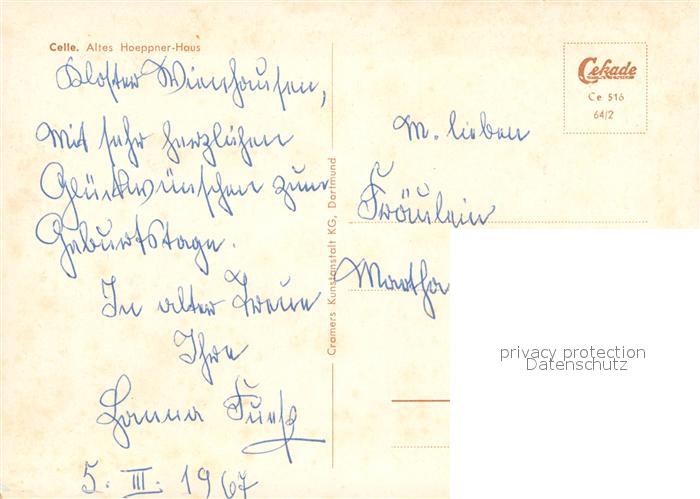 Celle. Altes Hoeppner-Haus
Kloster Wienhausen,
Mit sehr herzlichen
Glückwünschen zum
Geburtstage.
In alter Treue
Ihre
Hanna
5. III. 1967
Cramers Kunstanstalt KG, Dortmund
Cekade
Ce 516
64/2
M. lieben
Fräulein
Martha
privacy protection
Datenschutz